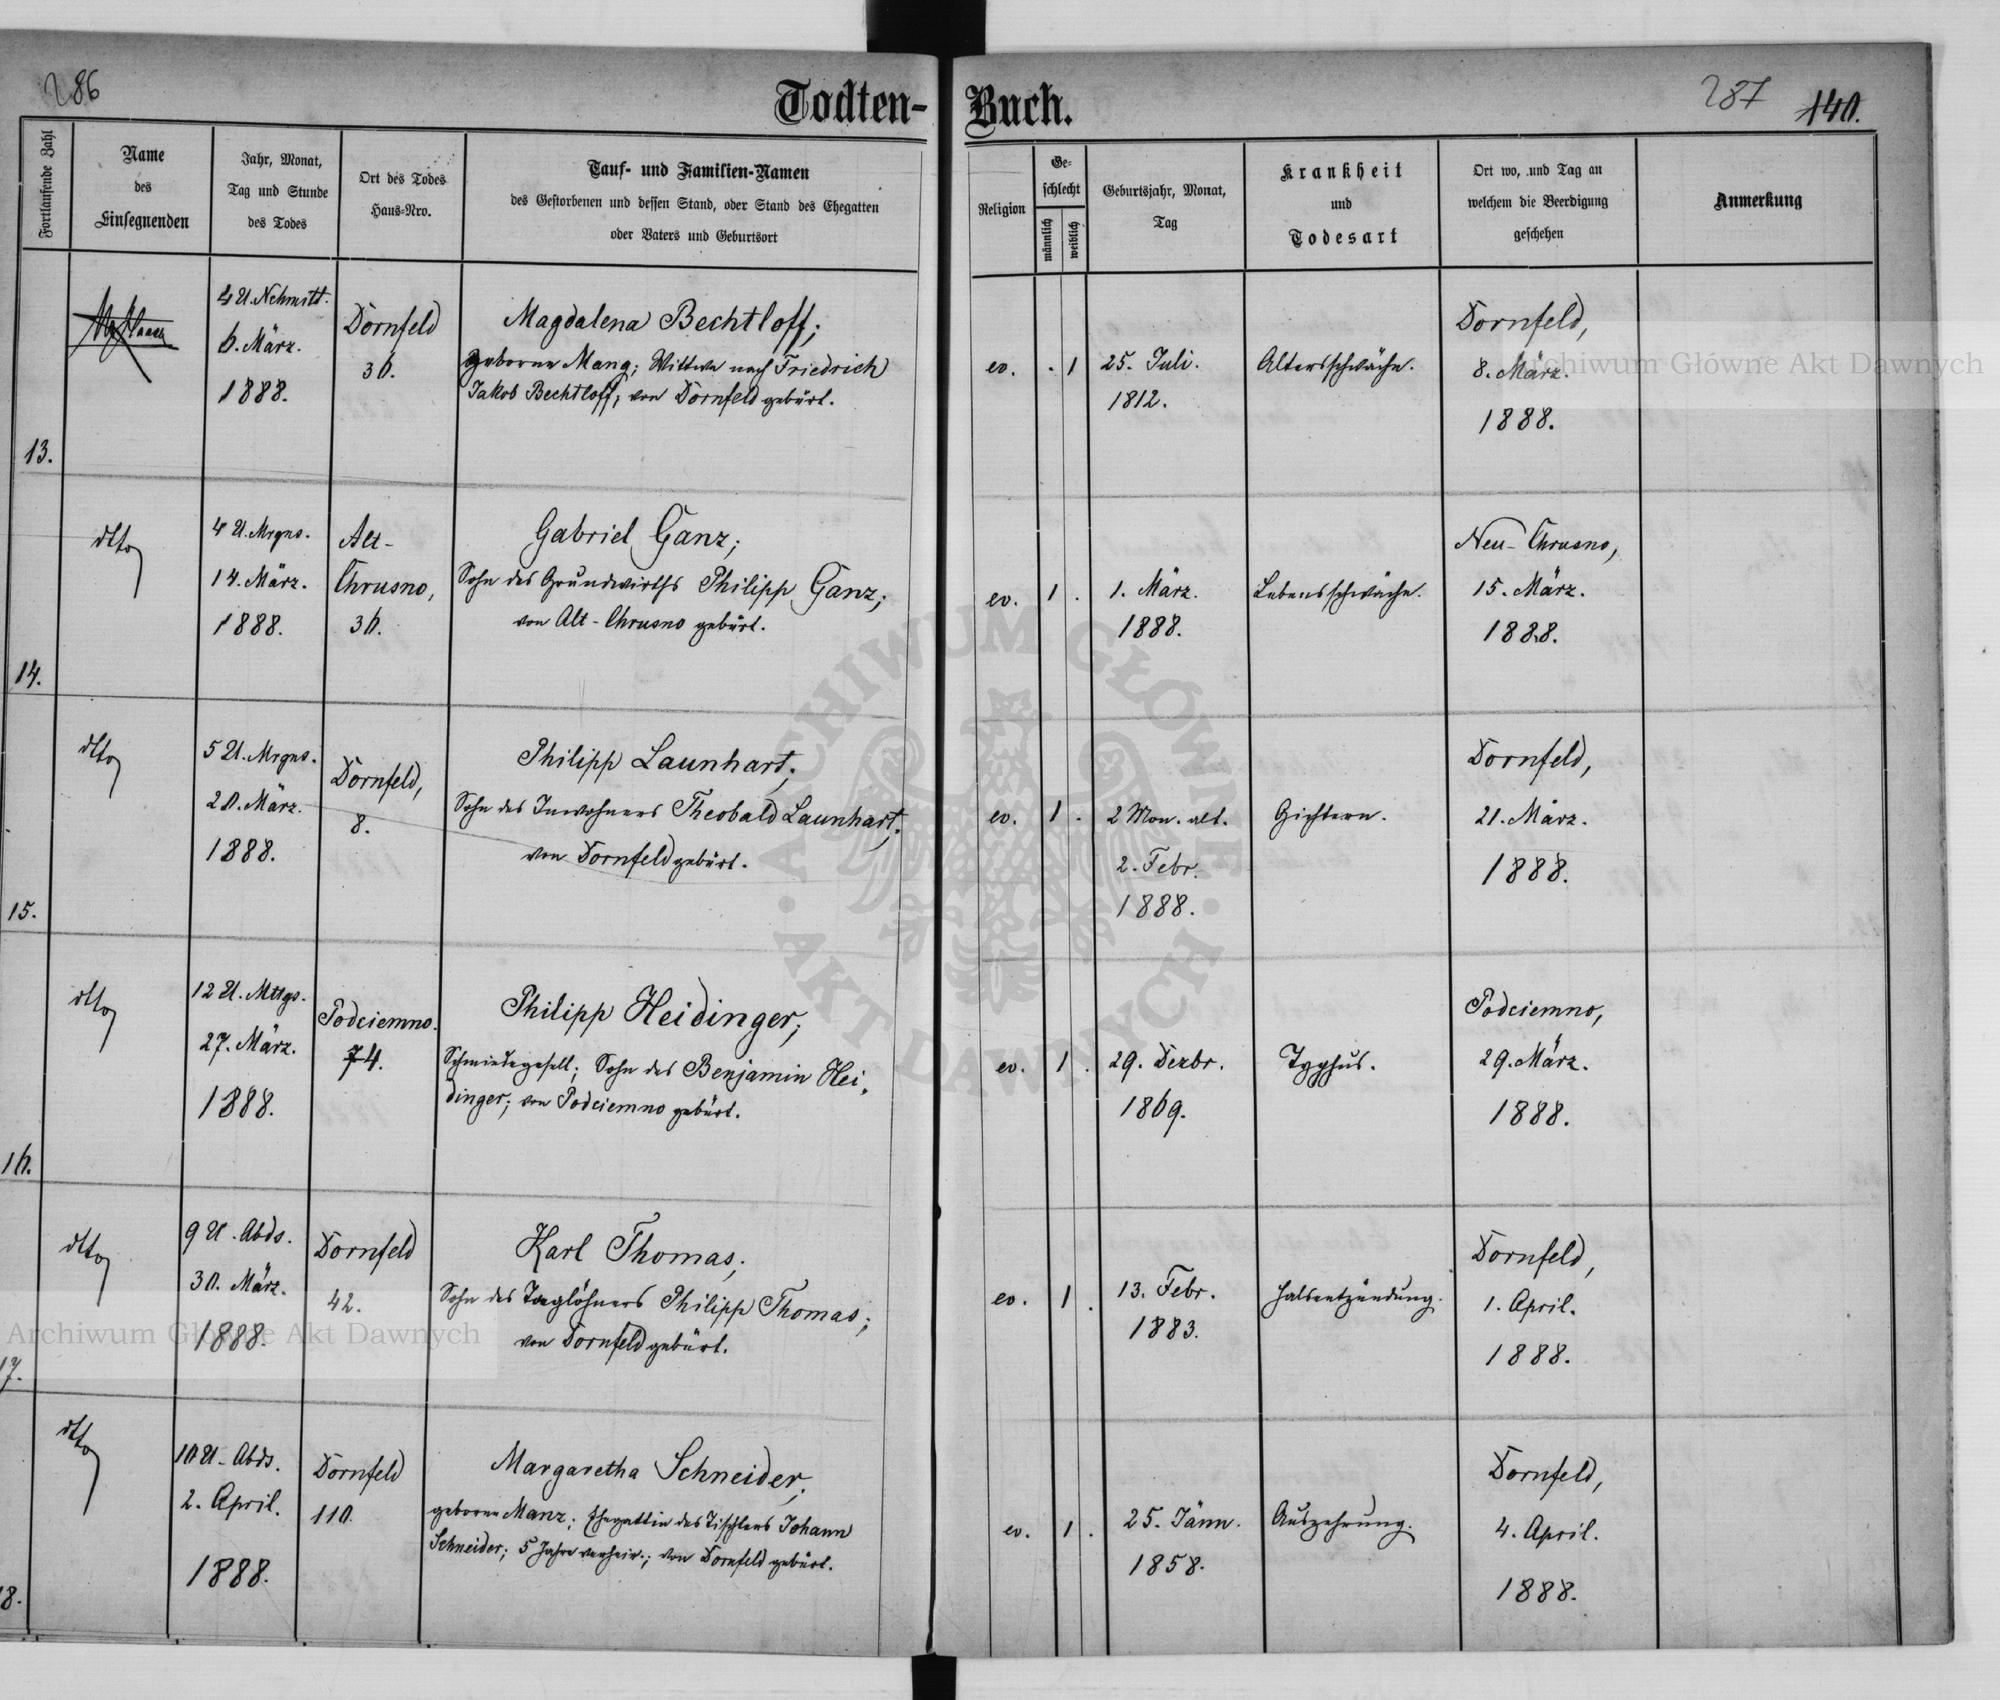 286
Todten-
Buch.
287 140.
Fortlaufende Zahl
Name
des
Einsegnenden
Jahr, Monat,
Tag und Stunde
des Todes
Ort des Todes
Haus-Nro.
Tauf- und Familien-Namen
des Gestorbenen und dessen Stand, oder Stand des Ehegatten
oder Vaters und Geburtsort
Religion
Ge-
schlecht
männlich
weiblich
Geburtsjahr, Monat,
Tag
Krankheit
und
Todesart
Ort wo, und Tag an
welchem die Beerdigung
geschehen
Anmerkung
13.
4 U. Nchmitt.
6. März.
1888.
Dornfeld
36.
Magdalena Bechtloff;
geborne Mang; Wittwe nach Friedrich
Jakob Bechtloff; von Dornfeld gebürt.
ev.
. 1
25. Juli.
1812.
Altersschwäche.
Dornfeld,
8. März.
1888.
14.
dtto
4 U. Mrgns.
14. März.
1888.
Alt-
Chrusno,
36.
Gabriel Ganz;
Sohn des Grundwirths Philipp Ganz;
von Alt-Chrusno gebürt.
ev.
1 .
1. März.
1888.
Lebensschwäche.
Neu-Chrusno,
15. März.
1888.
15.
dtto
5 U. Mrgns.
20. März.
1888.
Dornfeld,
8.
Philipp Launhart;
Sohn des Inwohners Theobald Launhart;
von Dornfeld gebürt.
ev.
1 .
2 Mon. alt.
2. Febr.
1888.
Gichtern.
Dornfeld,
21. März.
1888.
16.
dtto
12 U. Mttgs.
27. März.
1888.
Podciemno.
74.
Philipp Heidinger;
Schmiedegesell; Sohn des Benjamin Hei-
dinger; von Podciemno gebürt.
ev.
1 .
29. Dezbr.
1869.
Typhus.
Podciemno,
29. März.
1888.
17.
dtto
9 U. Abds.
30. März.
1888.
Dornfeld
42.
Karl Thomas;
Sohn des Taglöhners Philipp Thomas;
von Dornfeld gebürt.
ev.
1 .
13. Febr.
1883.
Halsentzündung.
Dornfeld,
1. April.
1888.
18.
dtto
10 U. Abds.
2. April.
1888.
Dornfeld
110.
Margaretha Schneider;
geborne Manz; Ehegattin des Tischlers Johann
Schneider; 5 Jahre verheir.; von Dornfeld gebürt.
ev.
1 .
25. Jänn.
1858.
Auszehrung.
Dornfeld,
4. April.
1888.
Archiwum Główne Akt Dawnych
Archiwum Główne Akt Dawnych
ARCHIWUM GŁÓWNE · AKT DAWNYCH ·